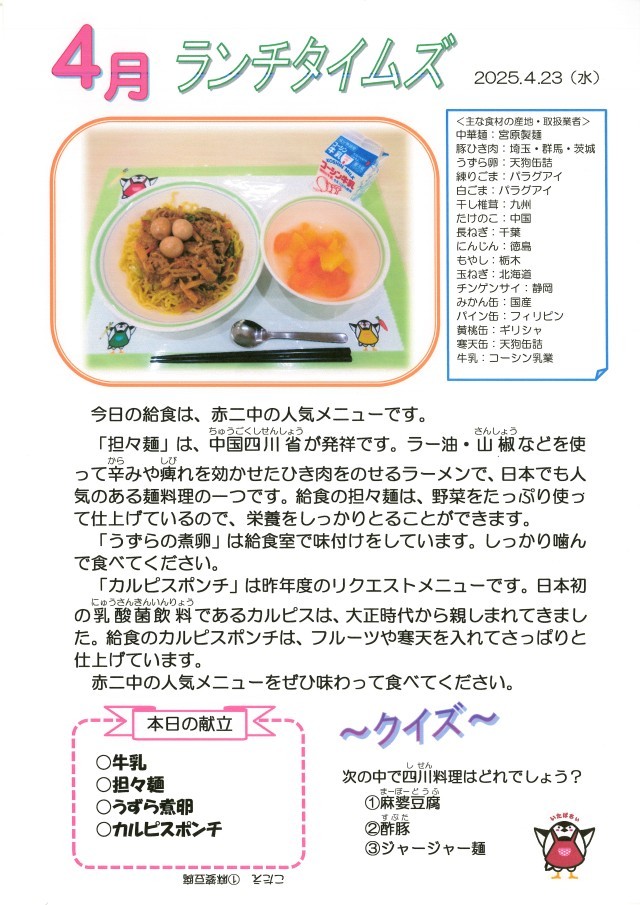 4月 ランチタイムズ 2025.4.23（水）
＜主な食材の産地・取扱業者＞
中華麺：宮原製麺
豚ひき肉：埼玉・群馬・茨城
うずら卵：天狗缶詰
練りごま：パラグアイ
白ごま：パラグアイ
干し椎茸：九州
たけのこ：中国
長ねぎ：千葉
にんじん：徳島
もやし：栃木
玉ねぎ：北海道
チンゲンサイ：静岡
みかん缶：国産
パイン缶：フィリピン
黄桃缶：ギリシャ
寒天缶：天狗缶詰
牛乳：コーシン乳業
コーシン牛乳
今日の給食は、赤二中の人気メニューです。
ちゅうごくしせんしょう さんしょう
「担々麺」は、中国四川省が発祥です。ラー油・山椒などを使
から しび
って辛みや痺れを効かせたひき肉をのせるラーメンで、日本でも人
気のある麺料理の一つです。給食の担々麺は、野菜をたっぷり使っ
て仕上げているので、栄養をしっかりとることができます。
「うずらの煮卵」は給食室で味付けをしています。しっかり噛ん
で食べてください。
「カルピスポンチ」は昨年度のリクエストメニューです。日本初
にゅうさんきんいんりょう
の乳酸菌飲料であるカルピスは、大正時代から親しまれてきまし
た。給食のカルピスポンチは、フルーツや寒天を入れてさっぱりと
仕上げています。
赤二中の人気メニューをぜひ味わって食べてください。
本日の献立
○牛乳
○担々麺
○うずら煮卵
○カルピスポンチ
～クイズ～
しせん
次の中で四川料理はどれでしょう？
まーぼーどうふ
①麻婆豆腐
すぶた
②酢豚
③ジャージャー麺
いたばさい
こたえ ①麻婆豆腐